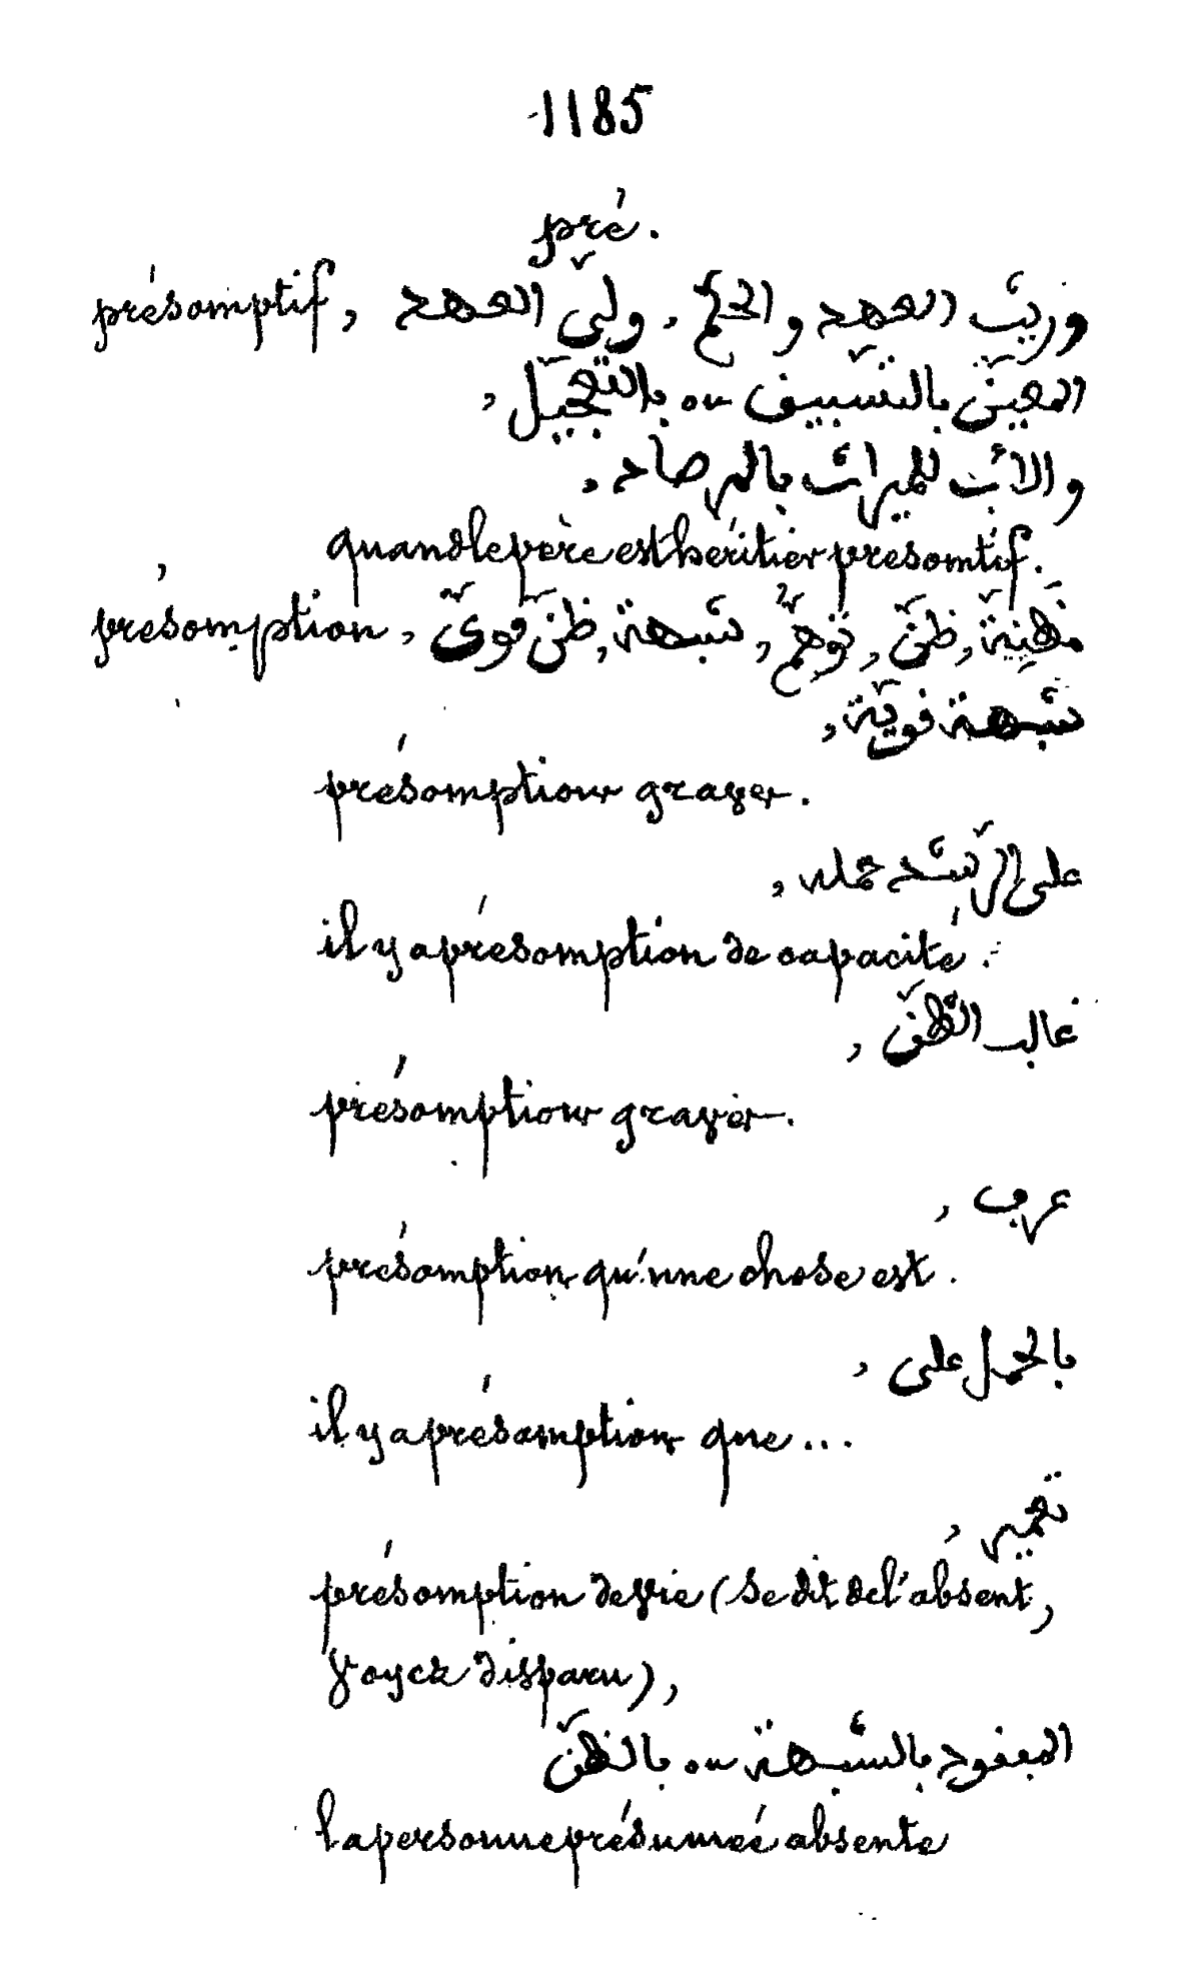 1185
pré.
présomptif, وريث العهد و الحكم, وليّ العهد
المعيّن بالتسبيف ou بالتعجيل,
والاب للميراث بالمرصاد,
quand le père est héritier présomtif.
présomption, مظنية, ظنّ, توهّم, شبهة, ظنّ قوىّ
شبهة قويّة,
présomptions graves.
على الرّشد حمله,
il y a présomption de capacité.
غالب الظّنّ,
présomptions graves.
عرف,
présomption qu'une chose est.
بالحمل على,
il y a présomption que...
تعمير,
présomption de vie (se dit de l'absent,
voyez disparu),
المفقود بالشّبهة ou بالظنّ
la personne présumée absente